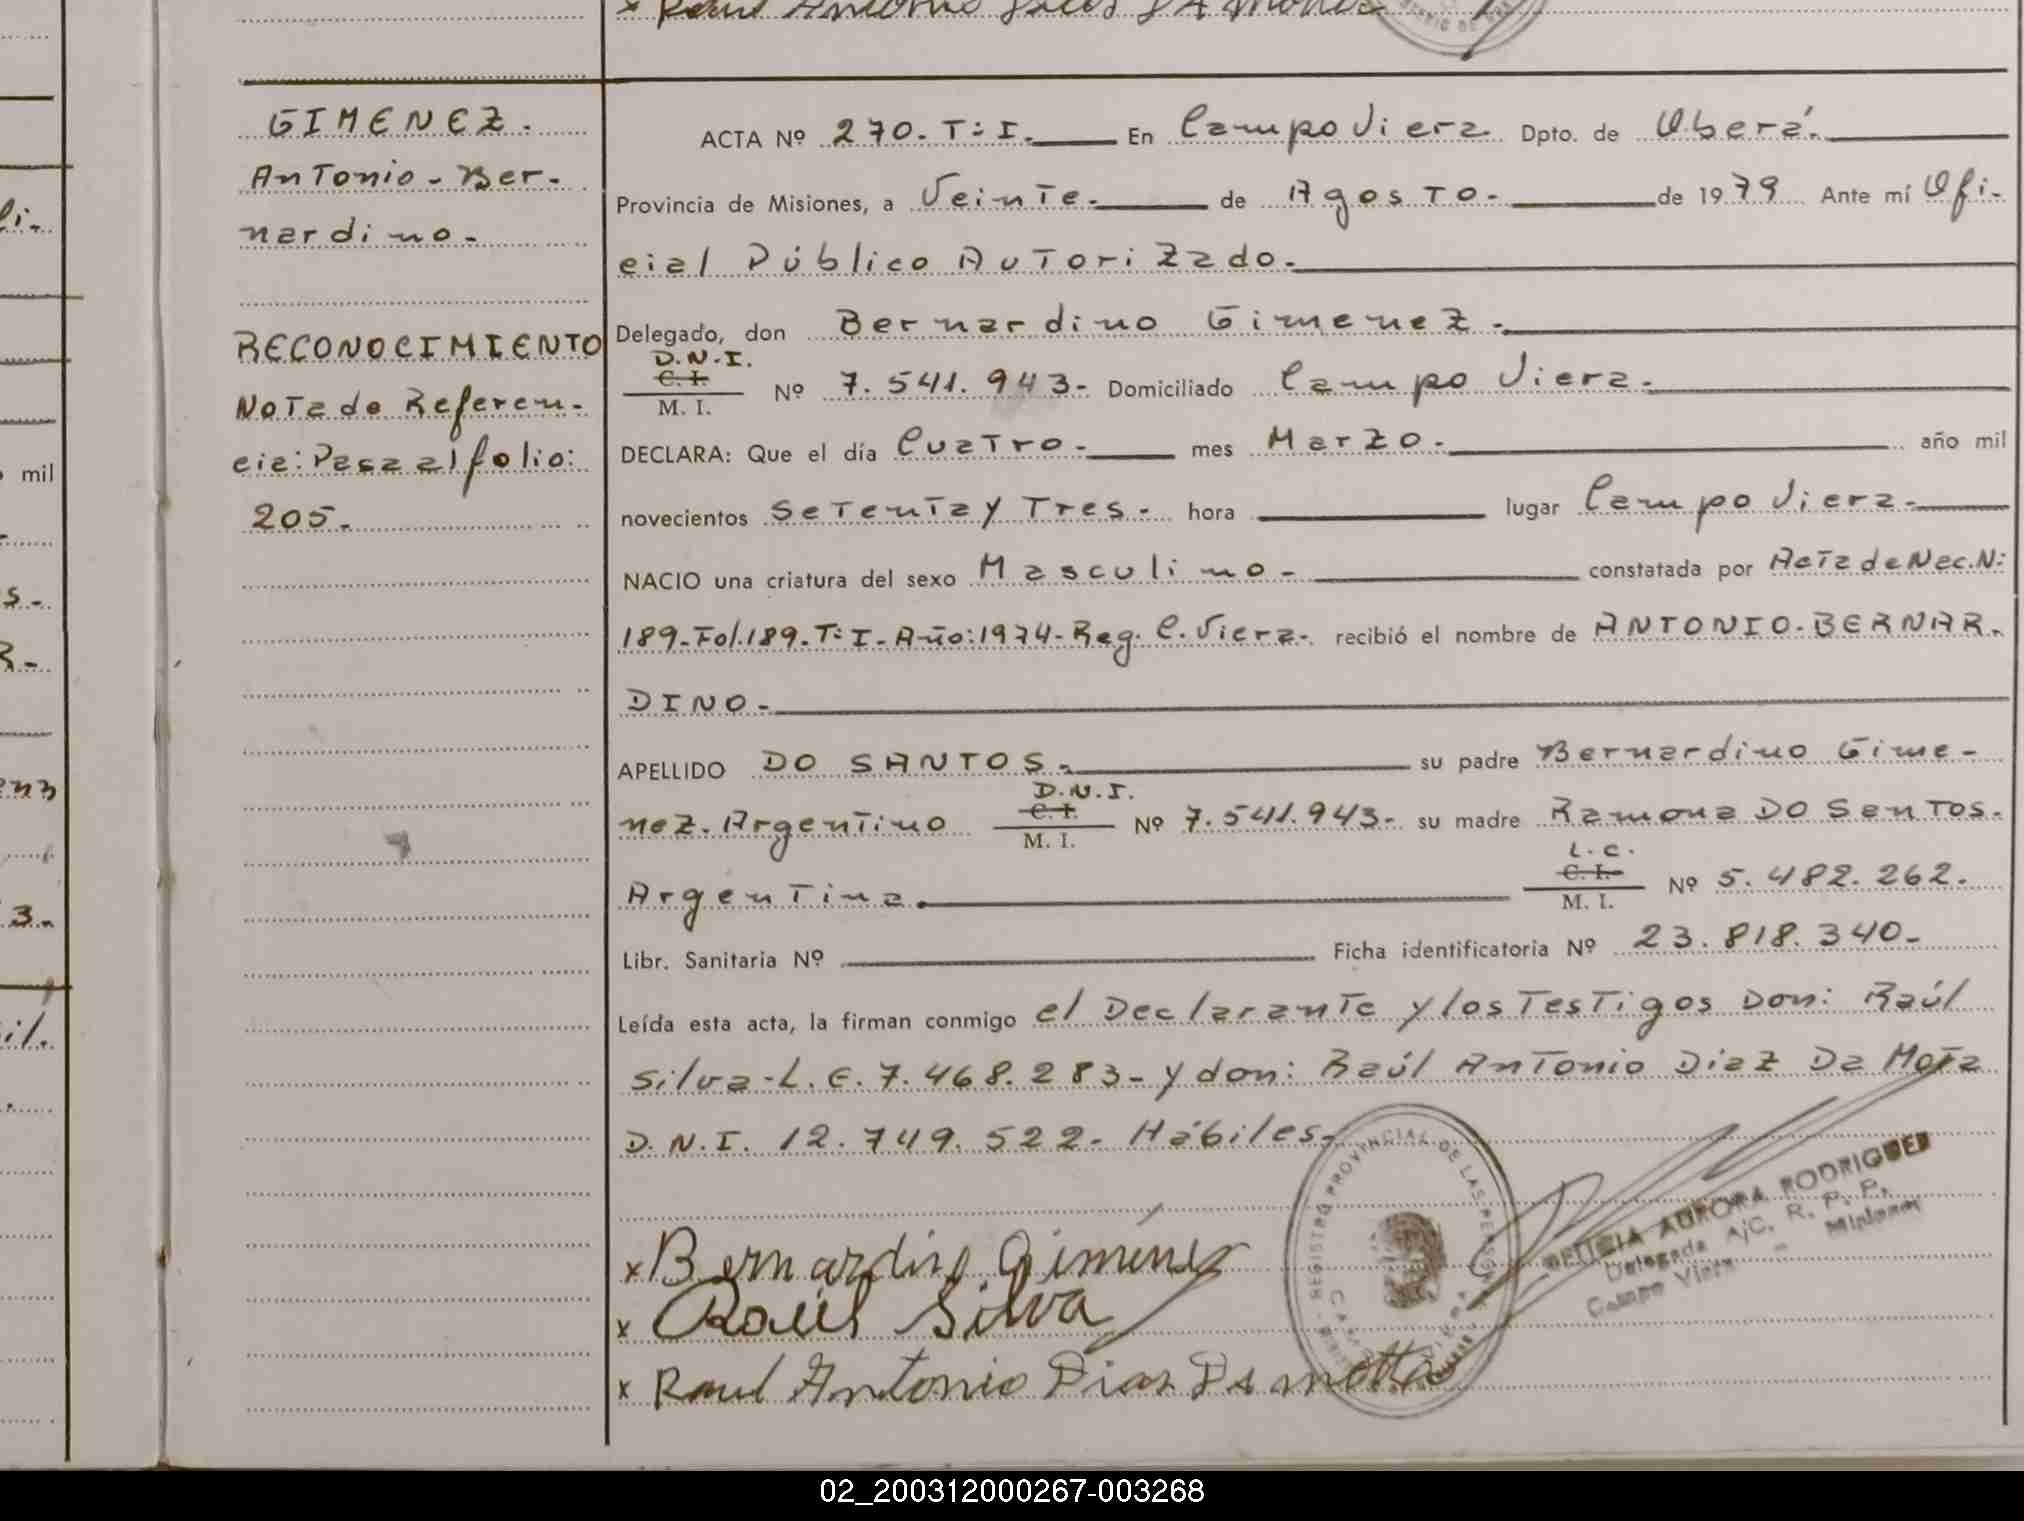 GIMENEZ.
Antonio-Ber-
nardino.
RECONOCIMIENTO
Nota de Referen-
cia: Pasa al folio:
205.
ACTA Nº 270. T: I. En Campo Viera Dpto. de Oberá.
Provincia de Misiones, a Veinte. de Agosto. de 1979 Ante mí Ofi-
cial Público Autorizado.
Delegado, don Bernardino Gimenez.
D.N.I.
C. I.
M. I.
Nº 7.541.943- Domiciliado Campo Viera.
DECLARA: Que el día Cuatro. mes Marzo. año mil
novecientos Setenta y Tres. hora lugar Campo Viera.
NACIO una criatura del sexo Masculino. constatada por Acta de Nac. N:
189-Fol.189-T: I-Año:1974-Reg. C. Viera. recibió el nombre de ANTONIO-BERNAR-
DINO.
APELLIDO DO SANTOS. su padre Bernardino Gime-
nez. Argentino
D.N.I.
C. I.
M. I.
Nº 7.541.943- su madre Ramona DO Santos.
Argentina.
L. C.
C. I.
M. I.
Nº 5.482.262.
Libr. Sanitaria Nº Ficha identificatoria Nº 23.818.340-
Leída esta acta, la firman conmigo el Declarante y los Testigos Don: Raúl
Silva-L. E. 7.468.283- y don: Raúl Antonio Diaz Da Mota
D.N.I. 12.749.522- Hábiles.
x Bernardino Giménez
x Raúl Silva
x Raul Antonio Dias Da motta
REGISTRO PROVINCIAL DE LAS PERSONAS
AURORA RODRIGUEZ
Delegada A/C. R. P. P.
Campo Viera - Misiones
02_200312000267-003268